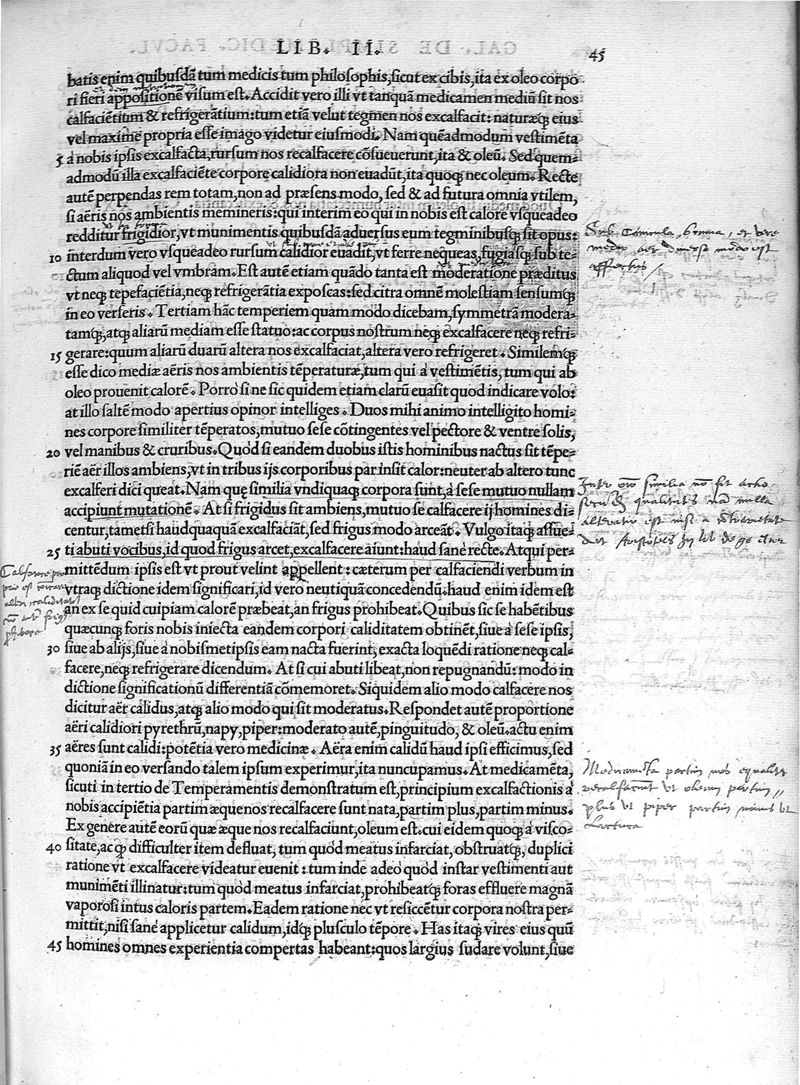 LIB. II.
45
batis enim quibusdā tum medicis tum philosophis, sicut ex cibis, ita ex oleo corpo
ri fieri appositionē visum est. Accidit vero illi vt tanquā medicamen mediū sit nos
calfaciētium & refrigerātium: tum etiā velut tegmen nos excalfacit: naturæq; eius
vel maxime propria esse imago videtur eiusmodi. Nam quēadmodum vestimēta
5 à nobis ipsis excalfacta, rursum nos recalfacere cōsueuerunt, ita & oleū. Sed quem-
admodū illa excalfaciēte corpore calidiora non euadūt, ita quoq; nec oleum. Recte
autē perpendas rem totam, non ad præsens modo, sed & ad futura omnia vtilem,
si aëris nos ambientis memineris: qui interim eo qui in nobis est calore vsqueadeo
redditur frigidior, vt munimentis quibusdā aduersus eum tegminibusq; sit opus:
10 interdum vero vsqueadeo rursum calidior euadit, vt ferre nequeas, fugiasq; sub te-
ctum aliquod vel vmbram. Est autē etiam quādo tanta est moderatione præditus
vt neq; tepefaciētia, neq; refrigerātia exposcas: sed citra omnē molestiam sensumq;
in eo verseris. Tertiam hāc temperiem quam modo dicebam, symmetrā modera-
tamq;, atq; aliarū mediam esse statuo: ac corpus nostrum neq; excalfacere neq; refri-
15 gerare: quum aliarū duarū altera nos excalfaciat, altera vero refrigeret. Similemq;
esse dico mediæ aëris nos ambientis tēperaturæ, tum qui a vestimētis, tum qui ab
oleo prouenit calorē. Porro si ne sic quidem etiam clarū euasit quod indicare volo:
at illo saltē modo apertius opinor intelliges. Duos mihi animo intelligito homi-
nes corpore similiter tēperatos, mutuo sese cōtingentes vel pectore & ventre solis,
20 vel manibus & cruribus. Quòd si eandem duobus istis hominibus nactus sit tēpe-
riē aër illos ambiens, vt in tribus ijs corporibus par insit calor: neuter ab altero tunc
excalferi dici queat. Nam quę similia vndiquaq; corpora sunt, à sese mutuo nullam
accipiunt mutationē. At si frigidus sit ambiens, mutuo se calfacere ij homines di-
centur, tametsi haudquaquā excalfaciāt, sed frigus modo arceāt. Vulgo itaq; assue-
25 ti abuti vocibus, id quod frigus arcet, excalfacere aiunt: haud sane recte. Atqui per-
mittēdum ipsis est vt prout velint appellent: cæterum per calfaciendi verbum in
vtraq; dictione idem significari, id vero neutiquā concedendū. haud enim idem est
an ex se quid cuipiam calorē præbeat, an frigus prohibeat. Quibus sic se habētibus
quæcunq; foris nobis iniecta eandem corpori caliditatem obtinēt, siue à sese ipsis,
30 siue ab alijs, siue à nobismetipsis eam nacta fuerint, exacta loquēdi ratione neq; cal-
facere, neq; refrigerare dicendum. At si cui abuti libeat, non repugnandū: modo in
dictione significationū differentiā cōmemoret. Siquidem alio modo calfacere nos
dicitur aër calidus, atq; alio modo qui sit moderatus. Respondet autē proportione
aëri calidiori pyrethrū, napy, piper: moderato autē, pinguitudo, & oleū. actu enim
35 aëres sunt calidi: potētia vero medicinæ. Aëra enim calidū haud ipsi efficimus, sed
quoniā in eo versando talem ipsum experimur, ita nuncupamus. At medicamēta,
sicuti in tertio de Temperamentis demonstratum est, principium excalfactionis à
nobis accipiētia partim æque nos recalfacere sunt nata, partim plus, partim minus.
Ex genere autē eorū quæ æque nos recalfaciunt, oleum est. cui eidem quoq; à visco-
40 sitate, ac q; difficulter item defluat, tum quòd meatus infarciat, obstruatq;, duplici
ratione vt excalfacere videatur euenit: tum inde adeo quòd instar vestimenti aut
munimēti illinatur: tum quòd meatus infarciat, prohibeatq; foras effluere magnā
vaporosi intus caloris partem. Eadem ratione nec vt resiccētur corpora nostra per-
mittit, nisi sane applicetur calidum, idq; plusculo tēpore. Has itaq; vires eius quū
45 homines omnes experientia compertas habeant: quos largius sudare volunt, siue
plus vt piper partim minus vt